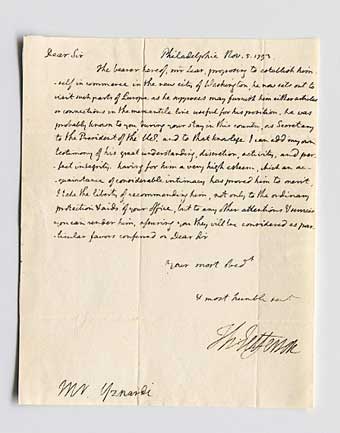 Dear Sir Philadelphia Nov. 5. 1793
The bearer hereof, mr Lear, proposing to establish him-
-self in commerce in the new city of Washington, he now sets out to
visit such parts of Europe as he supposes may furnish him either articles
or connections in the mercantile line useful for his position. he was
probably known to you during your stay in this country, as Secretary
to the President of the US. and to that knolege I can add my own
testimony of his great understanding, discretion, activity, and per-
-fect integrity. having for him a very high esteem, which an ac-
-quaintance of considerable intimacy has proved him to merit,
I take the liberty of recommending him, not only to the ordinary
protection & aids of your office, but to any other attentions & services
you can render him, assuring you they will be considered as par-
-ticular favors conferred on Dear Sir
Your most obed^t
& most humble serv^t
Th: Jefferson
Mr. Yznardi